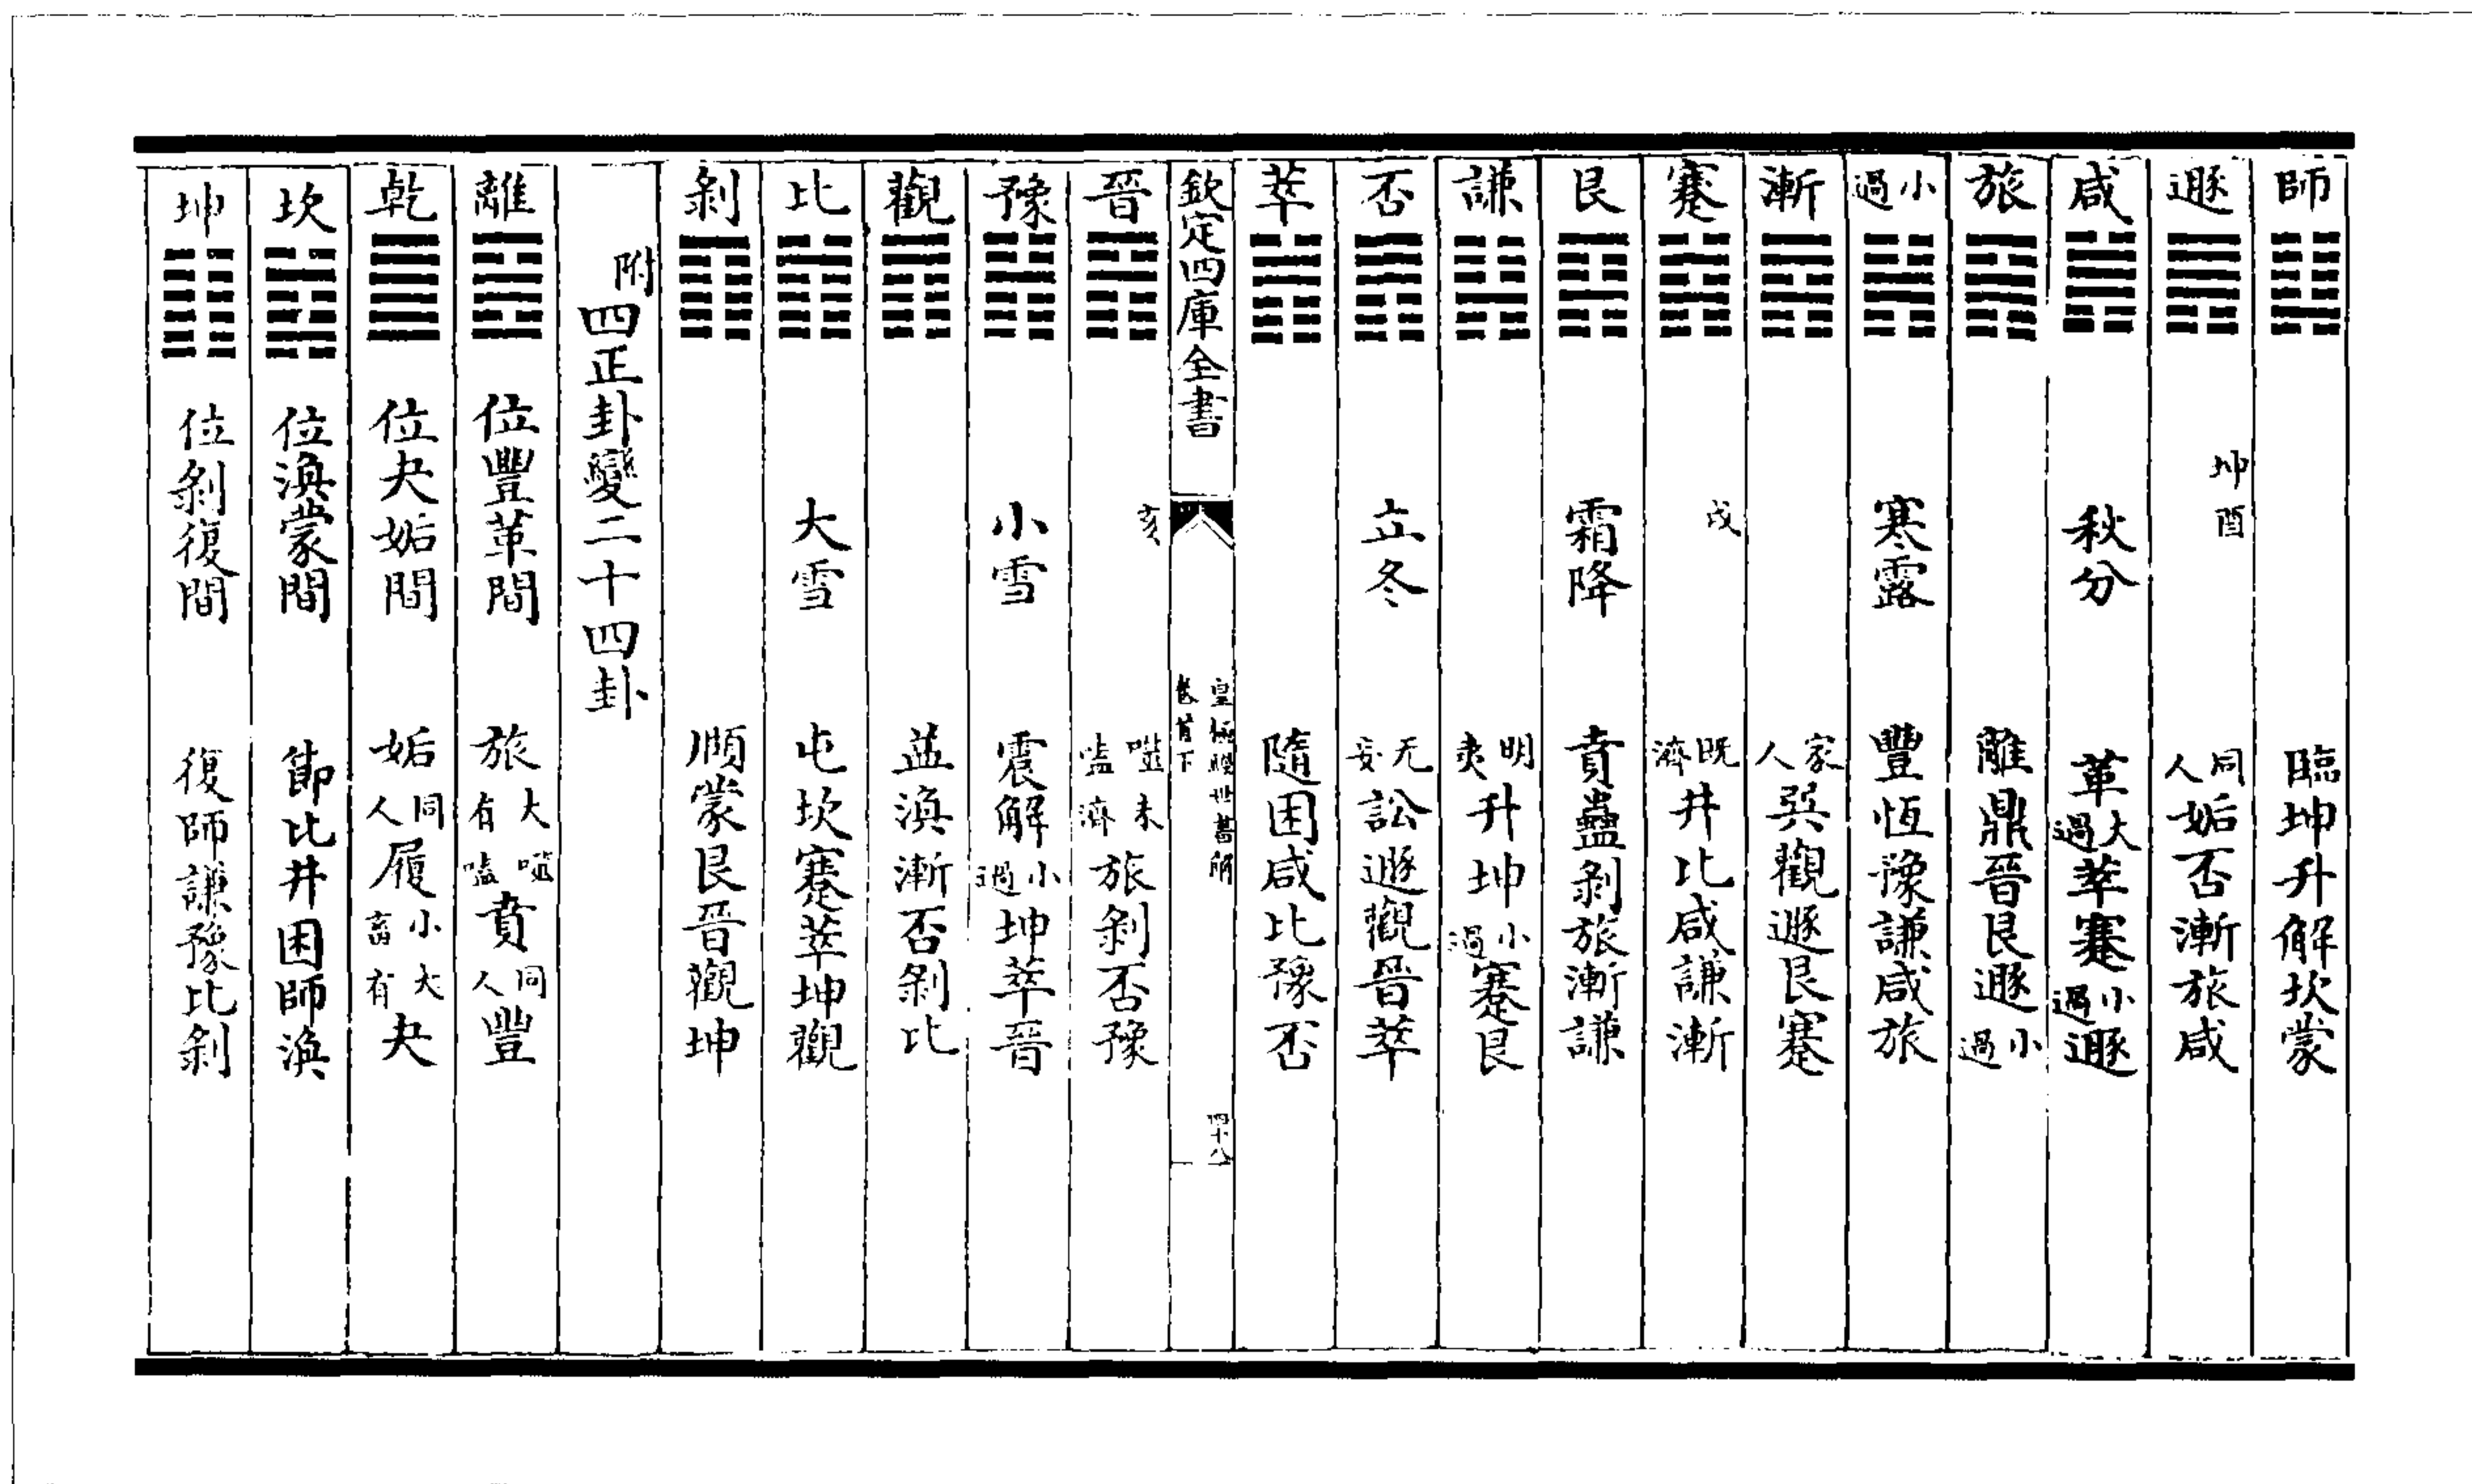 師 臨坤升解坎蒙
遯 坤酉 同人姤否漸旅咸
咸 秋分 革大過萃蹇小過遯
旅 離鼎晉艮遯小過
小過 寒露 豐恆豫謙咸旅
漸 家人巽觀遯艮蹇
蹇 戌 既濟井比咸謙漸
艮 霜降 賁蠱剝旅漸謙
謙 明夷升坤小過蹇艮
否 立冬 无妄訟遯觀晉萃
萃 隨困咸比豫否
欽定四庫全書 皇極經世書解 卷首下 四十八
晉 亥 噬嗑未濟旅剝否豫
豫 小雪 震解小過坤萃晉
觀 益渙漸否剝比
比 大雪 屯坎蹇萃坤觀
剝 頤蒙艮晉觀坤
附四正卦變二十四卦
離 位豐革間 旅大有噬嗑賁同人豐
乾 位夬姤間 姤同人履小畜大有夬
坎 位渙蒙間 節比井困師渙
坤 位剝復間 復師謙豫比剝